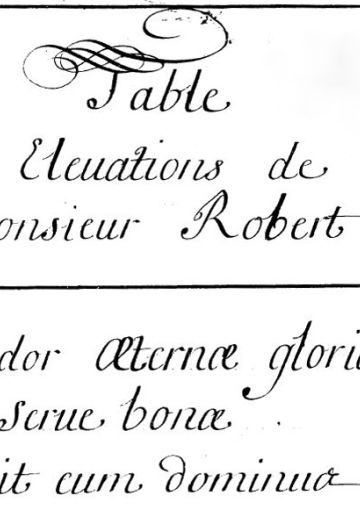 Table
Eleuations de
onsieur Robert
dor Æternæ glori
serue bonæ
it cum dominus